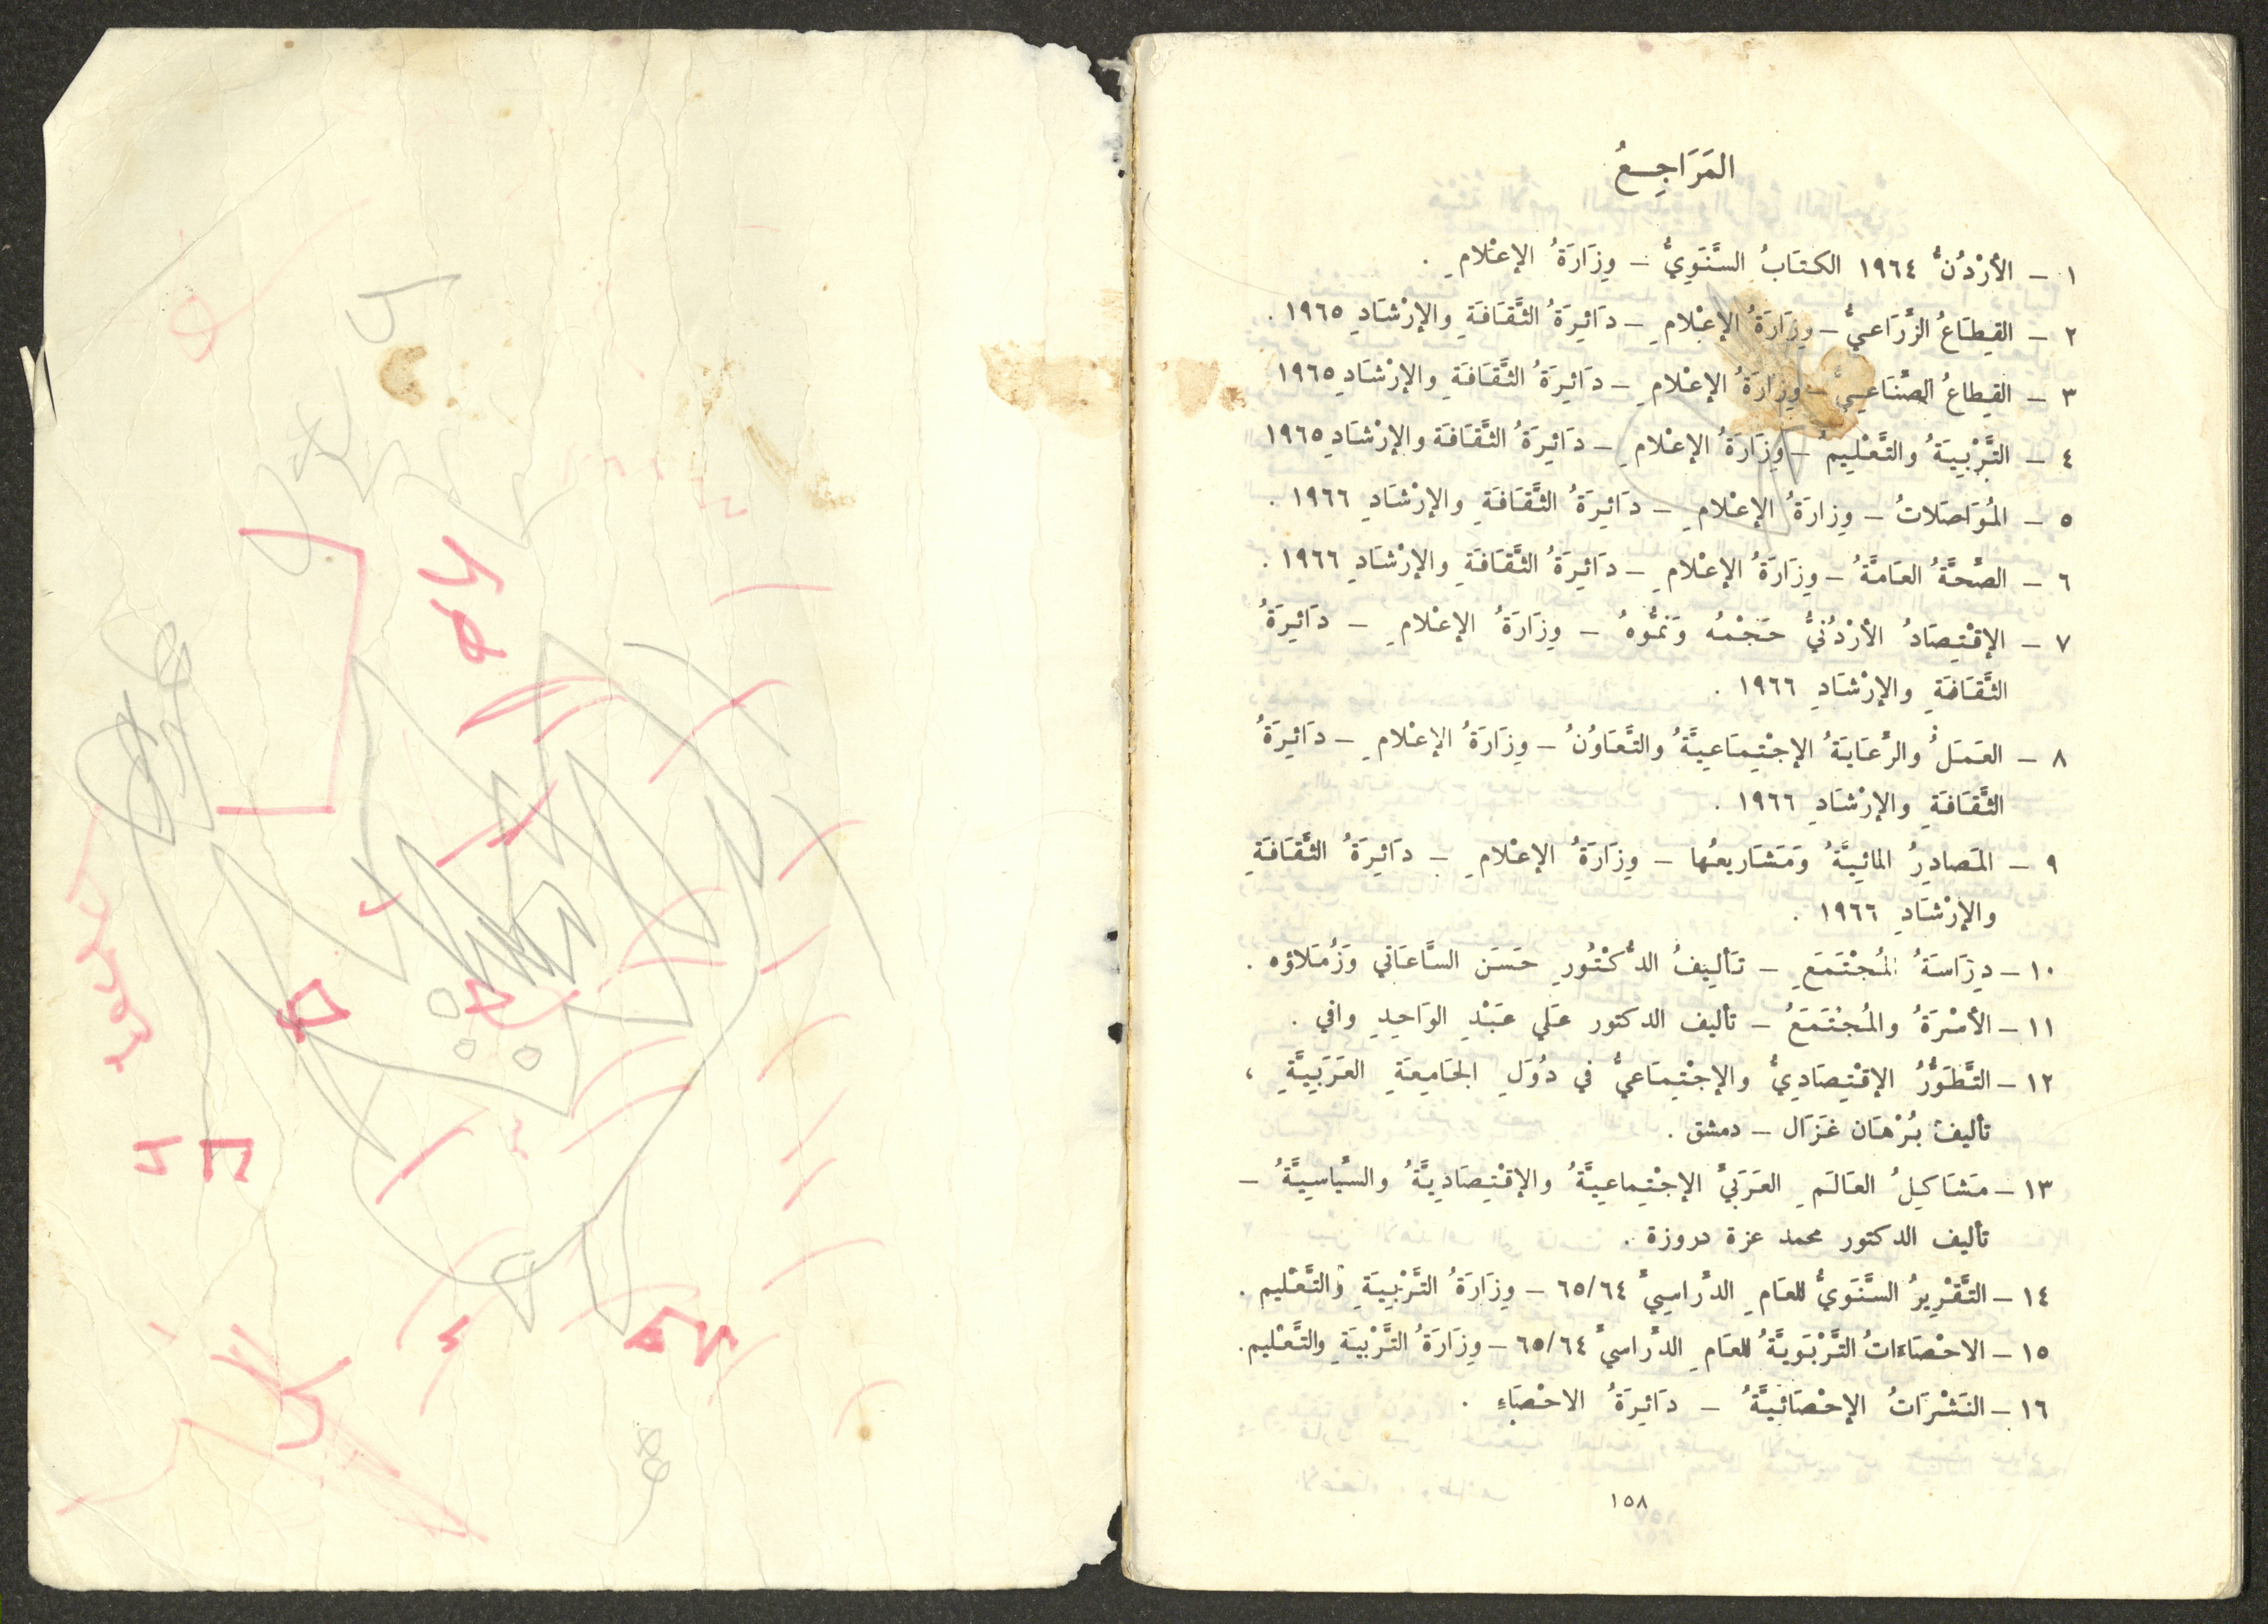 المَرَاجِعُ
١ – الأُرْدُنُّ ١٩٦٤ الكِتَابُ السَّنَوِيُّ – وِزَارَةُ الإِعْلامِ .
٢ – القِطَاعُ الزِّرَاعيُّ – وِزَارَةُ الإِعْلامِ – دَائِرَةُ الثَّقَافَةِ والإِرْشَادِ ١٩٦٥ .
٣ – القِطاعُ الصِّنَاعِيُّ – وِزَارَةُ الإِعْلامِ – دَائِرَةُ الثَّقَافَةِ والإِرْشَادِ ١٩٦٥
٤ – التَّرْبِيَةُ والتَّعْلِيمُ – وِزَارَةُ الإِعْلامِ – دَائِرَةُ الثَّقَافَة والإِرْشَادِ ١٩٦٥
٥ – المُوَاصَلاتُ – وِزارَةُ الإِعْلامِ – دَائِرَةُ الثَّقَافَةِ والإِرْشَادِ ١٩٦٦ .
٦ – الصِّحَّةُ العَامَّةُ – وِزَارَةُ الإِعْلامِ – دَائِرَةُ الثَّقَافَةِ والإِرْشَادِ ١٩٦٦ .
٧ – الإِقْتِصَادُ الأُرْدُنيُّ حَجْمُه وَنمُّوهُ – وِزَارَةُ الإِعْلامِ – دَائِرَةُ
الثَّقَافَةِ والإِرْشَادِ ١٩٦٦ .
٨ – العَمَلُ والرِّعَايَةُ الإِجْتِمَاعِيَّةُ والتَّعَاوُنُ – وِزَارَةُ الإِعْلامِ – دَائِرَةُ
الثَّقَافَةِ والإِرْشَادِ ١٩٦٦ .
٩ – المَصادِرُ المائِيَّةُ وَمَشَاريعُها – وِزَارَةُ الإِعْلامِ – دَائِرَةُ الثَّقَافَةِ
والإِرْشَادِ ١٩٦٦ .
١٠ – دِرَاسَةُ المُجْتَمَعِ – تَأليفُ الدُّكْتُورِ حَسَن السَّاعَاتي وَزُمَلاؤه .
١١ – الأُسْرَةُ والمُجْتَمَعُ – تأليف الدكتور عَلي عَبْدِ الوَاحِدِ وافي .
١٢ – التَّطَوُّرُ الإِقْتِصَادِيُّ والإِجْتِمَاعيُّ في دُوَلِ الجَامِعَةِ العَرَبِيَّةِ ،
تأليفُ بُرْهَان غَزَال – دمشق .
١٣ – مَشَاكِلُ العَالَمِ العَرَبيِّ الإِجْتِماعِيَّةُ والإِقْتِصَادِيَّةُ والسِّياسِيَّةُ –
تأليف الدكتور محمد عزة دروزة .
١٤ – التَّقْرِيرُ السَّنَوِيُّ للعَامِ الدِّرَاسِيِّ ٦٥/٦٤ – وِزَارَةُ التَّرْبِيَةِ والتَّعْليم .
١٥ – الاحْصَاءَاتُ التَّرْبَوِيَّةُ للعَامِ الدِّرَاسيِّ ٦٥/٦٤ – وِزَارَةُ التَّرْبِيَةِ والتَّعْليم.
١٦ – النَشْرَاتُ الإِحْصَائِيَّةُ – دَائِرَةُ الاحْصَاءِ .
١٥٨